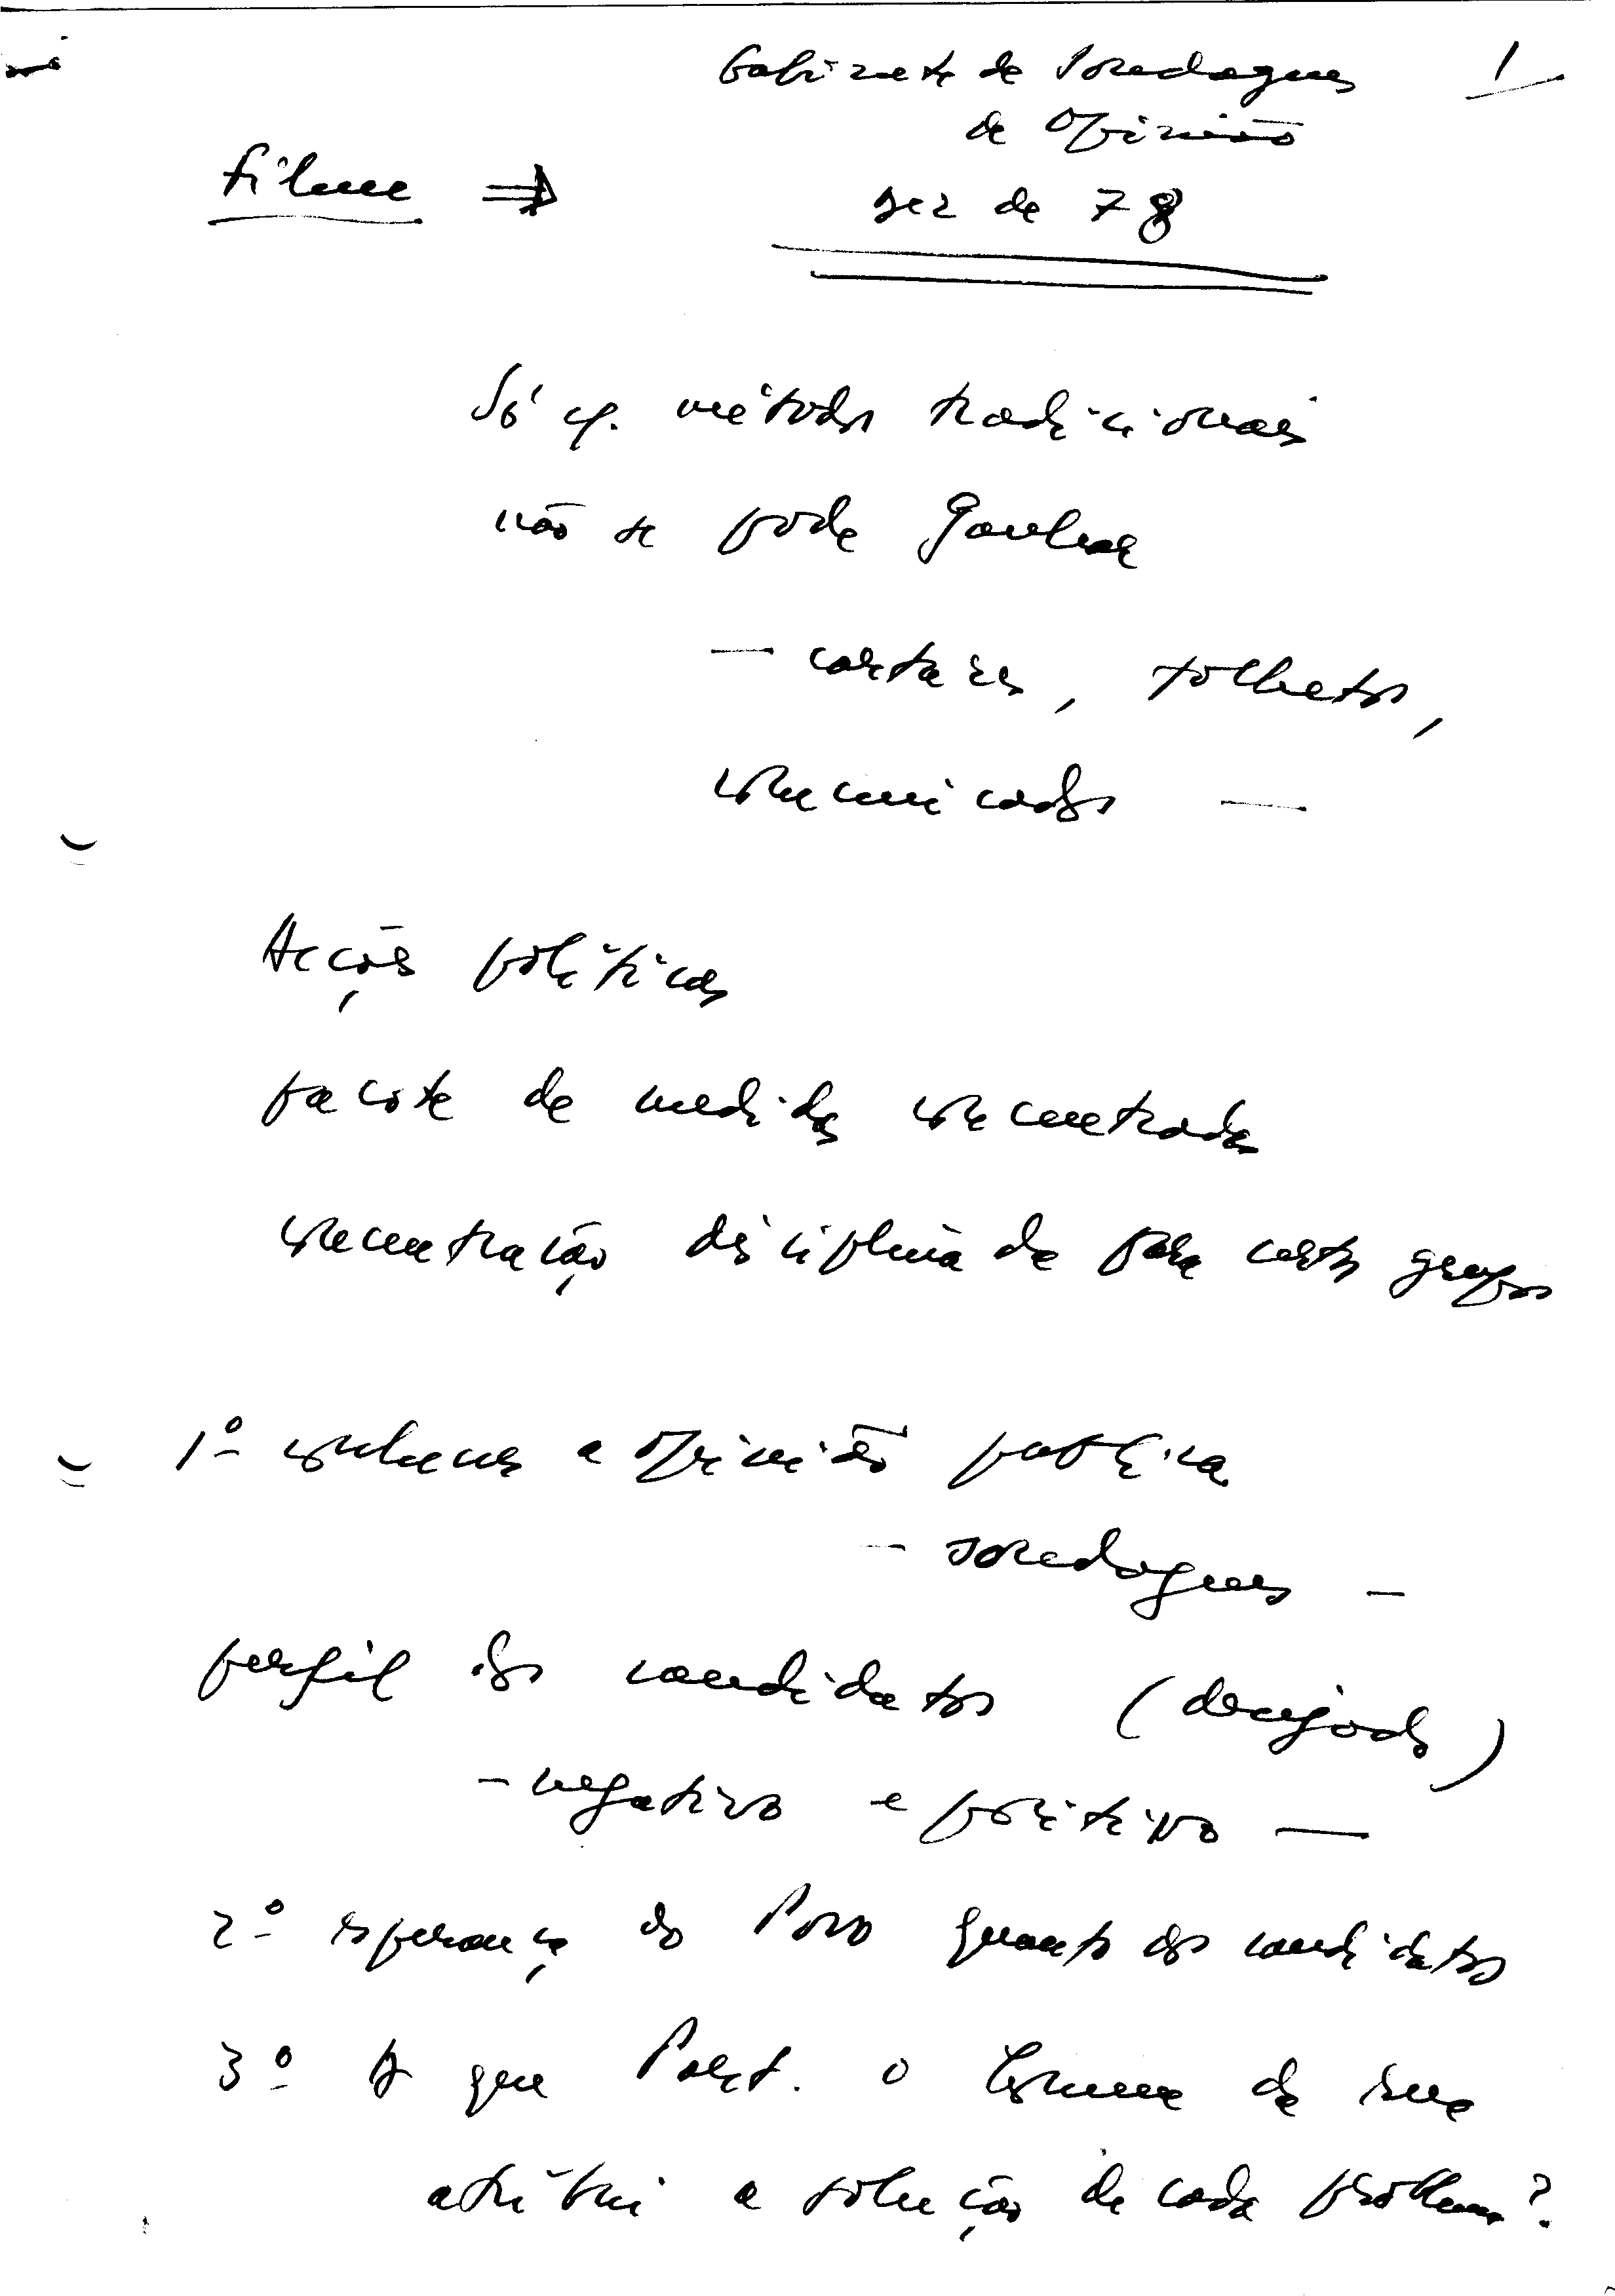 Gabinete de Sondagens 1
de Opinião
Filme ⇒
dez de 78
Só c/. métodos tradicionais
não se pode ganhar
— cartazes, folhetos,
comunicados —
Acções políticas
pacote de medidas concentradas
concentração disciplinada para certos grupos
1º - conhecer a opinião pública
- sondagens -
perfil dos candidatos (desejados)
- negativo e positivo —
2º - esperança do Povo quanto aos candidatos
3º - A que Part. o homem da rua
atribui a solução de cada problema?